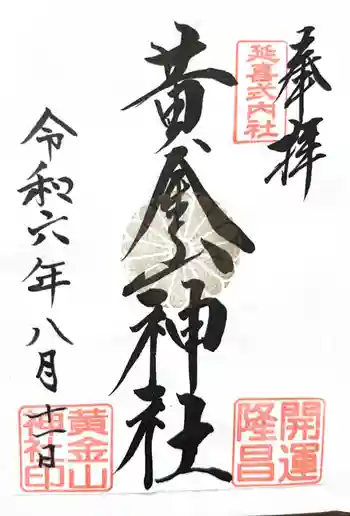 奉拝
延喜式内社
黄金山神社
開運
隆昌
令和六年八月十一日
黄金山
神社印